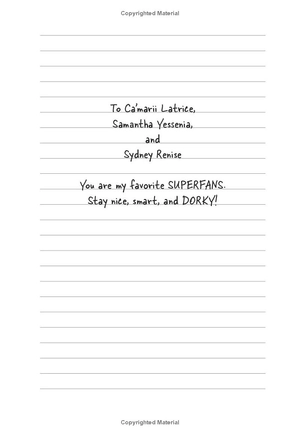 Copyrighted Material
To Ca'marii Latrice,
Samantha Yessenia,
and
Sydney Renise
You are my favorite SUPERFANS.
Stay nice, smart, and DORKY!
Copyrighted Material